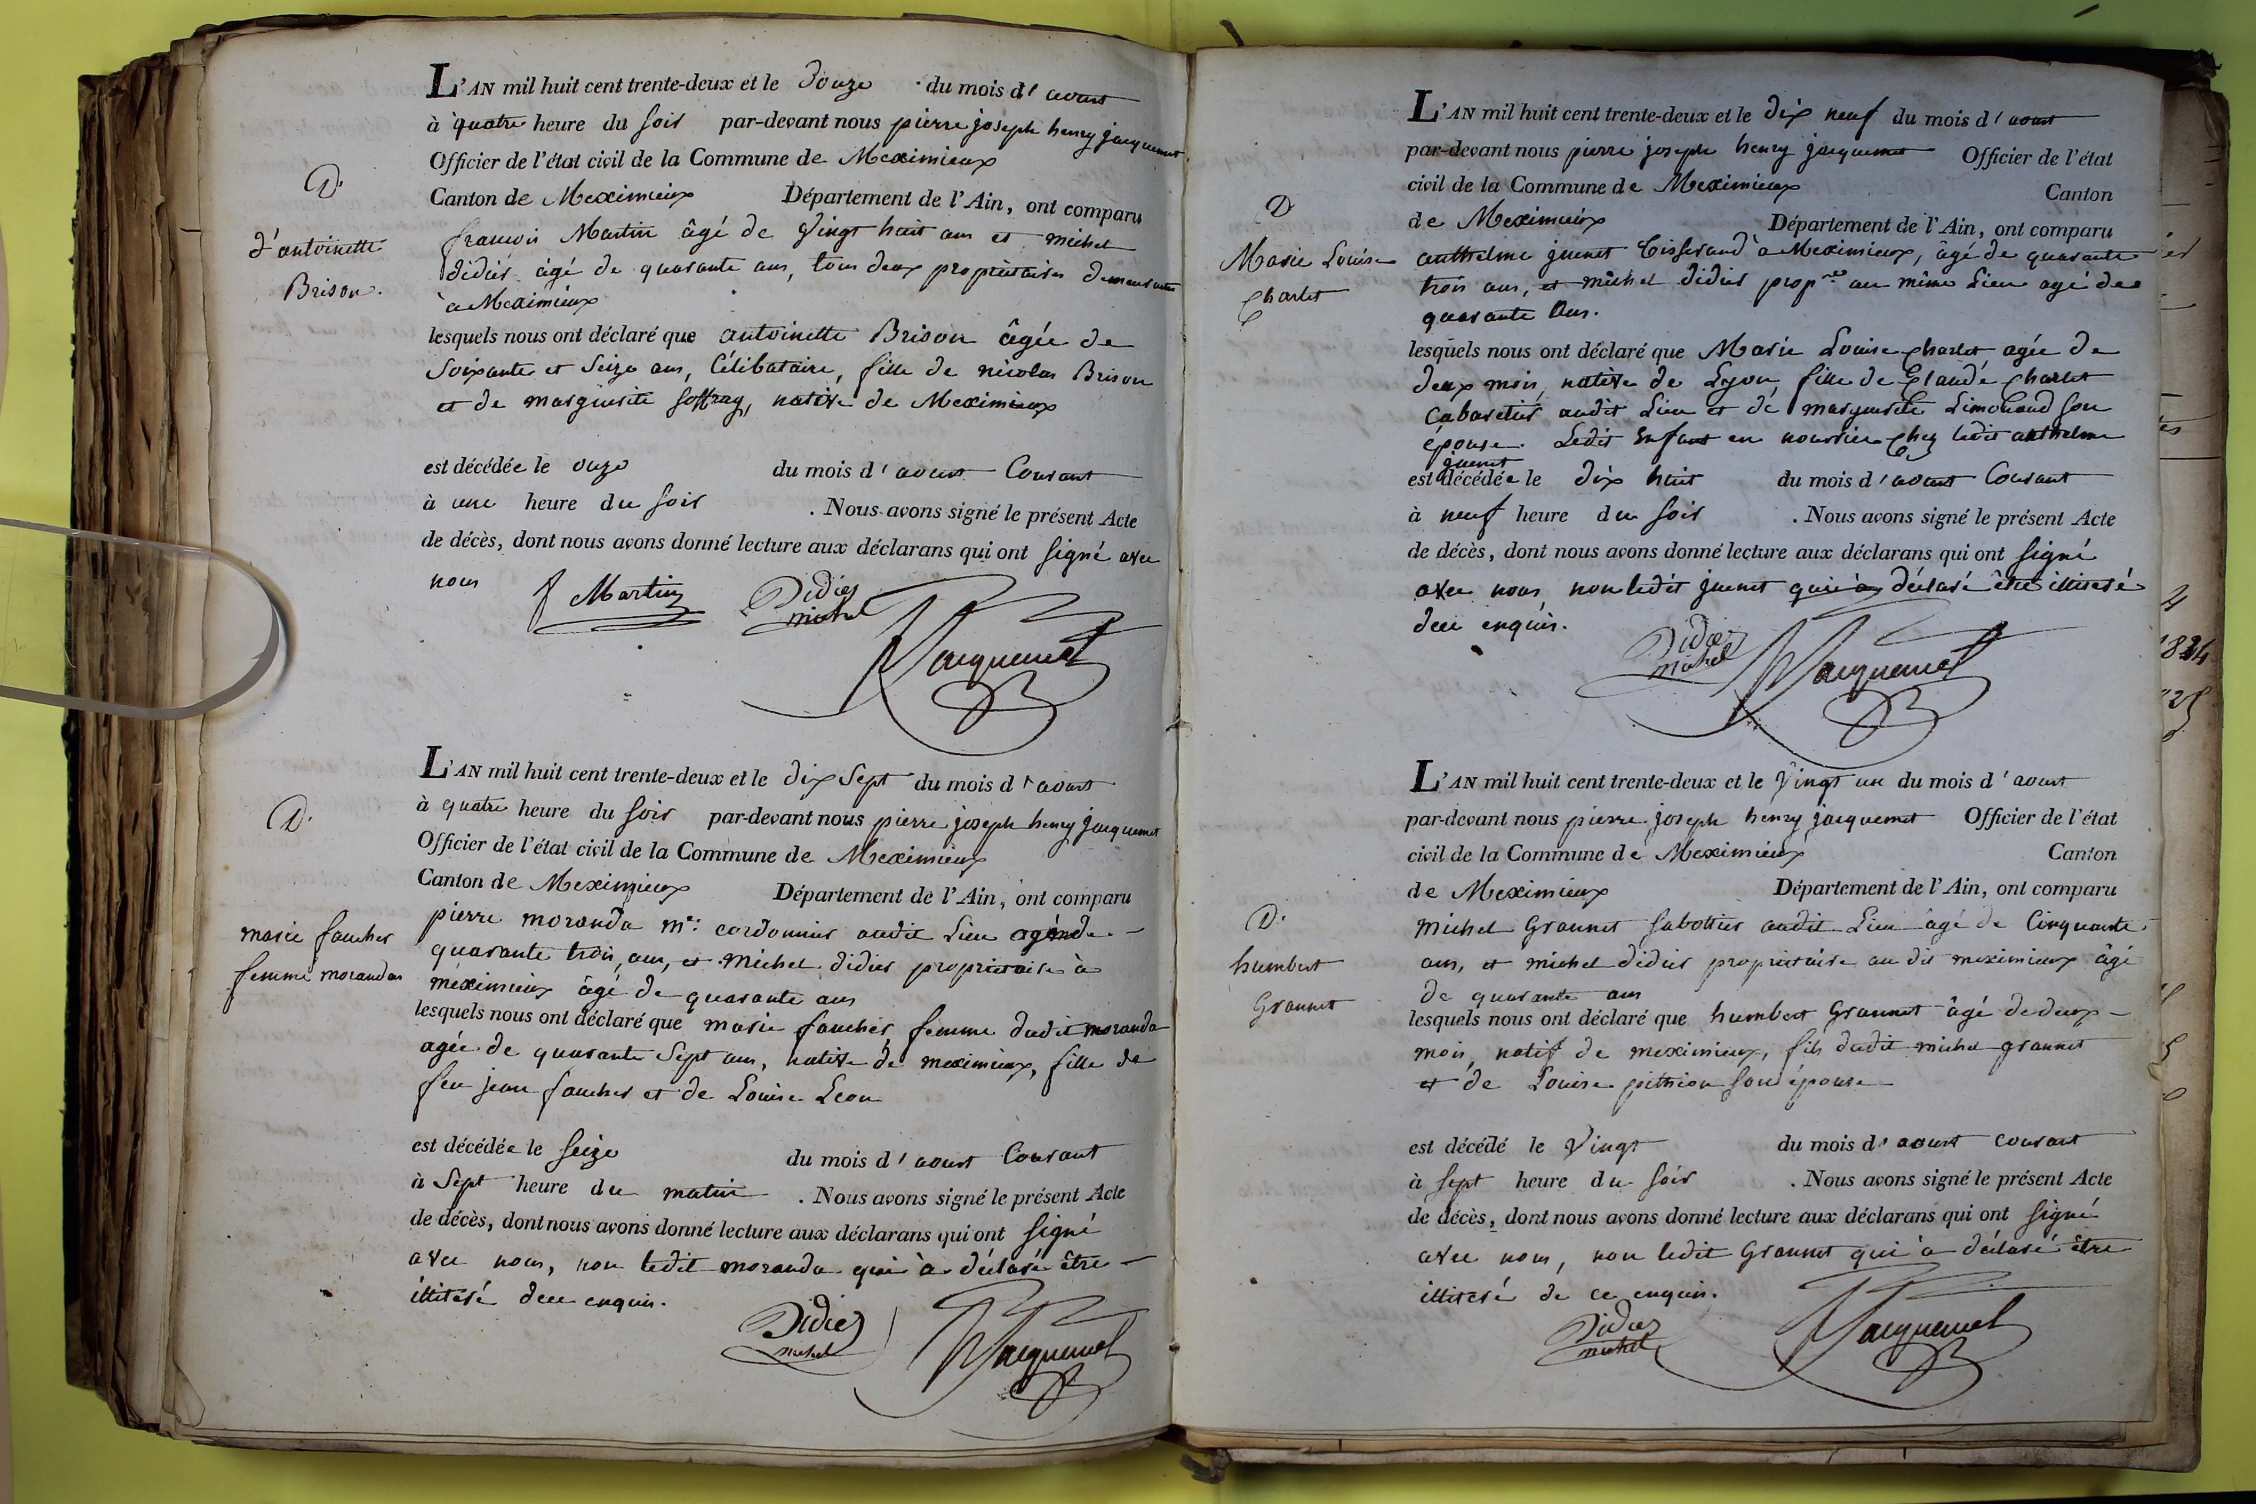 L'AN mil huit cent trente-deux et le Douze du mois d'aoust
à quatre heure du soir par-devant nous pierre joseph henry jacquemet
Officier de l'état civil de la Commune de Meximieux
Canton de Meximieux Département de l'Ain, ont comparu
D.
d'antoinette
Brison.
françois Martin âgé de vingt huit ans et michel
didier âgé de quarante ans, tous deux propriétaires demeurants
à Meximieux
lesquels nous ont déclaré que antoinette Brison âgée de
soixante et seize ans, Célibataire, fille de nicolas Brison
et de marguerite soffray, native de Meximieux
est décédée le onze du mois d'aoust Courant
à une heure du soir . Nous avons signé le présent Acte
de décès, dont nous avons donné lecture aux déclarans qui ont signé avec
nous
Martin Didier
michel
Jacquemet
L'AN mil huit cent trente-deux et le dix sept du mois d'aoust
à quatre heure du soir par-devant nous pierre joseph henry jacquemet
Officier de l'état civil de la Commune de Meximieux
Canton de Meximieux Département de l'Ain, ont comparu
D.
marie faucher
femme morandas
pierre moranda m.e cordonnier audit Lieu agé de
quarante trois ans, et michel didier propriétaire à
meximieux âgé de quarante ans
lesquels nous ont déclaré que marie faucher, femme dudit moranda
agée de quarante sept ans, native de meximieux, fille de
feu jean faucher et de Louise Leon
est décédée le seize du mois d'aoust Courant
à sept heure du matin . Nous avons signé le présent Acte
de décès, dont nous avons donné lecture aux déclarans qui ont signé
avec nous, non ledit moranda qui à déclaré être
illiteré dece enquis.
Didier
michel
Jacquemet
L'AN mil huit cent trente-deux et le dix neuf du mois d'aoust
par-devant nous pierre joseph henry jacquemet Officier de l'état
civil de la Commune de Meximieux Canton
de Meximieux Département de l'Ain, ont comparu
D
Marie Louise
Charlet
anthelme juenet tisserand à Meximieux, âgé de quarante
trois ans, et michel didier prop.re au même Lieu agé de
quarante ans.
lesquels nous ont déclaré que Marie Louise Charlet agée de
deux mois, native de Lyon, fille de Claude Charlet
Cabaretier audit Lieu et de marguerite Limouzaud son
épouse. Ledit Enfant en nourrice Chez ledit anthelme
juenet
est décédée le dix huit du mois d'aoust Courant
à neuf heure du soir . Nous avons signé le présent Acte
de décès, dont nous avons donné lecture aux déclarans qui ont signé
avec nous, non ledit juenet qui à déclaré être illiteré
dece enquis.
Didier
michel
Jacquemet
L'AN mil huit cent trente-deux et le vingt un du mois d'aoust
par-devant nous pierre joseph henry jacquemet Officier de l'état
civil de la Commune de Meximieux Canton
de Meximieux Département de l'Ain, ont comparu
D.
humbert
Grannet
michel Grannet sabottier audit Lieu âgé de Cinquante
ans, et michel didier propriétaire au dit meximieux âgé
de quarante ans
lesquels nous ont déclaré que humbert Grannet âgé de deux
mois, natif de meximieux, fils dudit michel grannet
et de Louise pithion son épouse
est décédé le vingt du mois d'aoust courant
à sept heure du soir . Nous avons signé le présent Acte
de décès, dont nous avons donné lecture aux déclarans qui ont signé
avec nous, non ledit Grannet qui à déclaré être
illiteré de ce enquis.
Didier
michel
Jacquemet